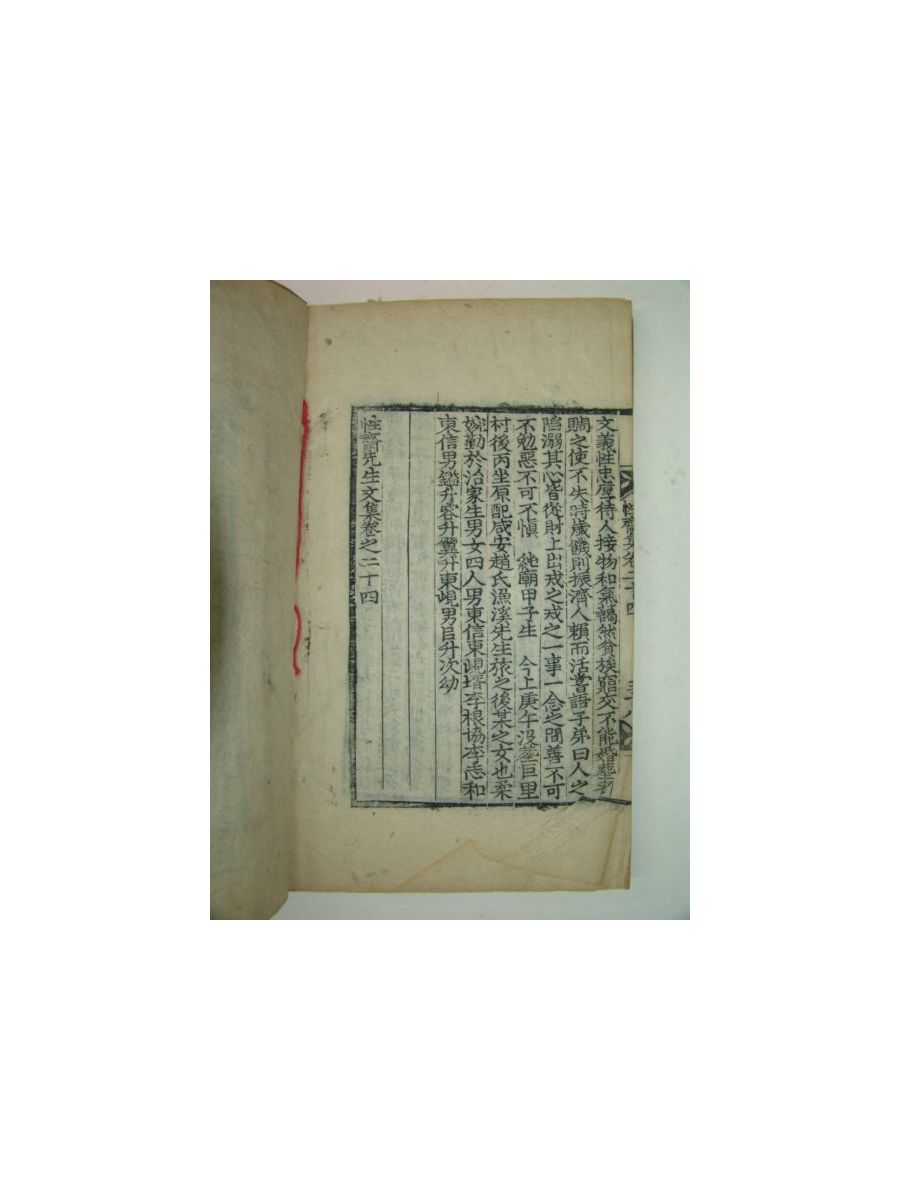 性齋集卷二十四
文義性忠厚待人接物和氣藹然貧族窮交不能婚葬則
賙之使不失時歲饑則振濟人賴而活嘗語子弟曰人之
陷溺其心皆從財上出戒之戒之一事一念之間善不可
不勉惡不可不愼 純廟甲子生 今上庚午沒葬巨里
村後丙坐原配咸安趙氏漁溪先生旅之後某之女也柔
婉勤於治家生男女四人男東信東峴壻李根協李志和
東信男鑑升容升翼升東峴男巨升次幼
性齋先生文集卷之二十四